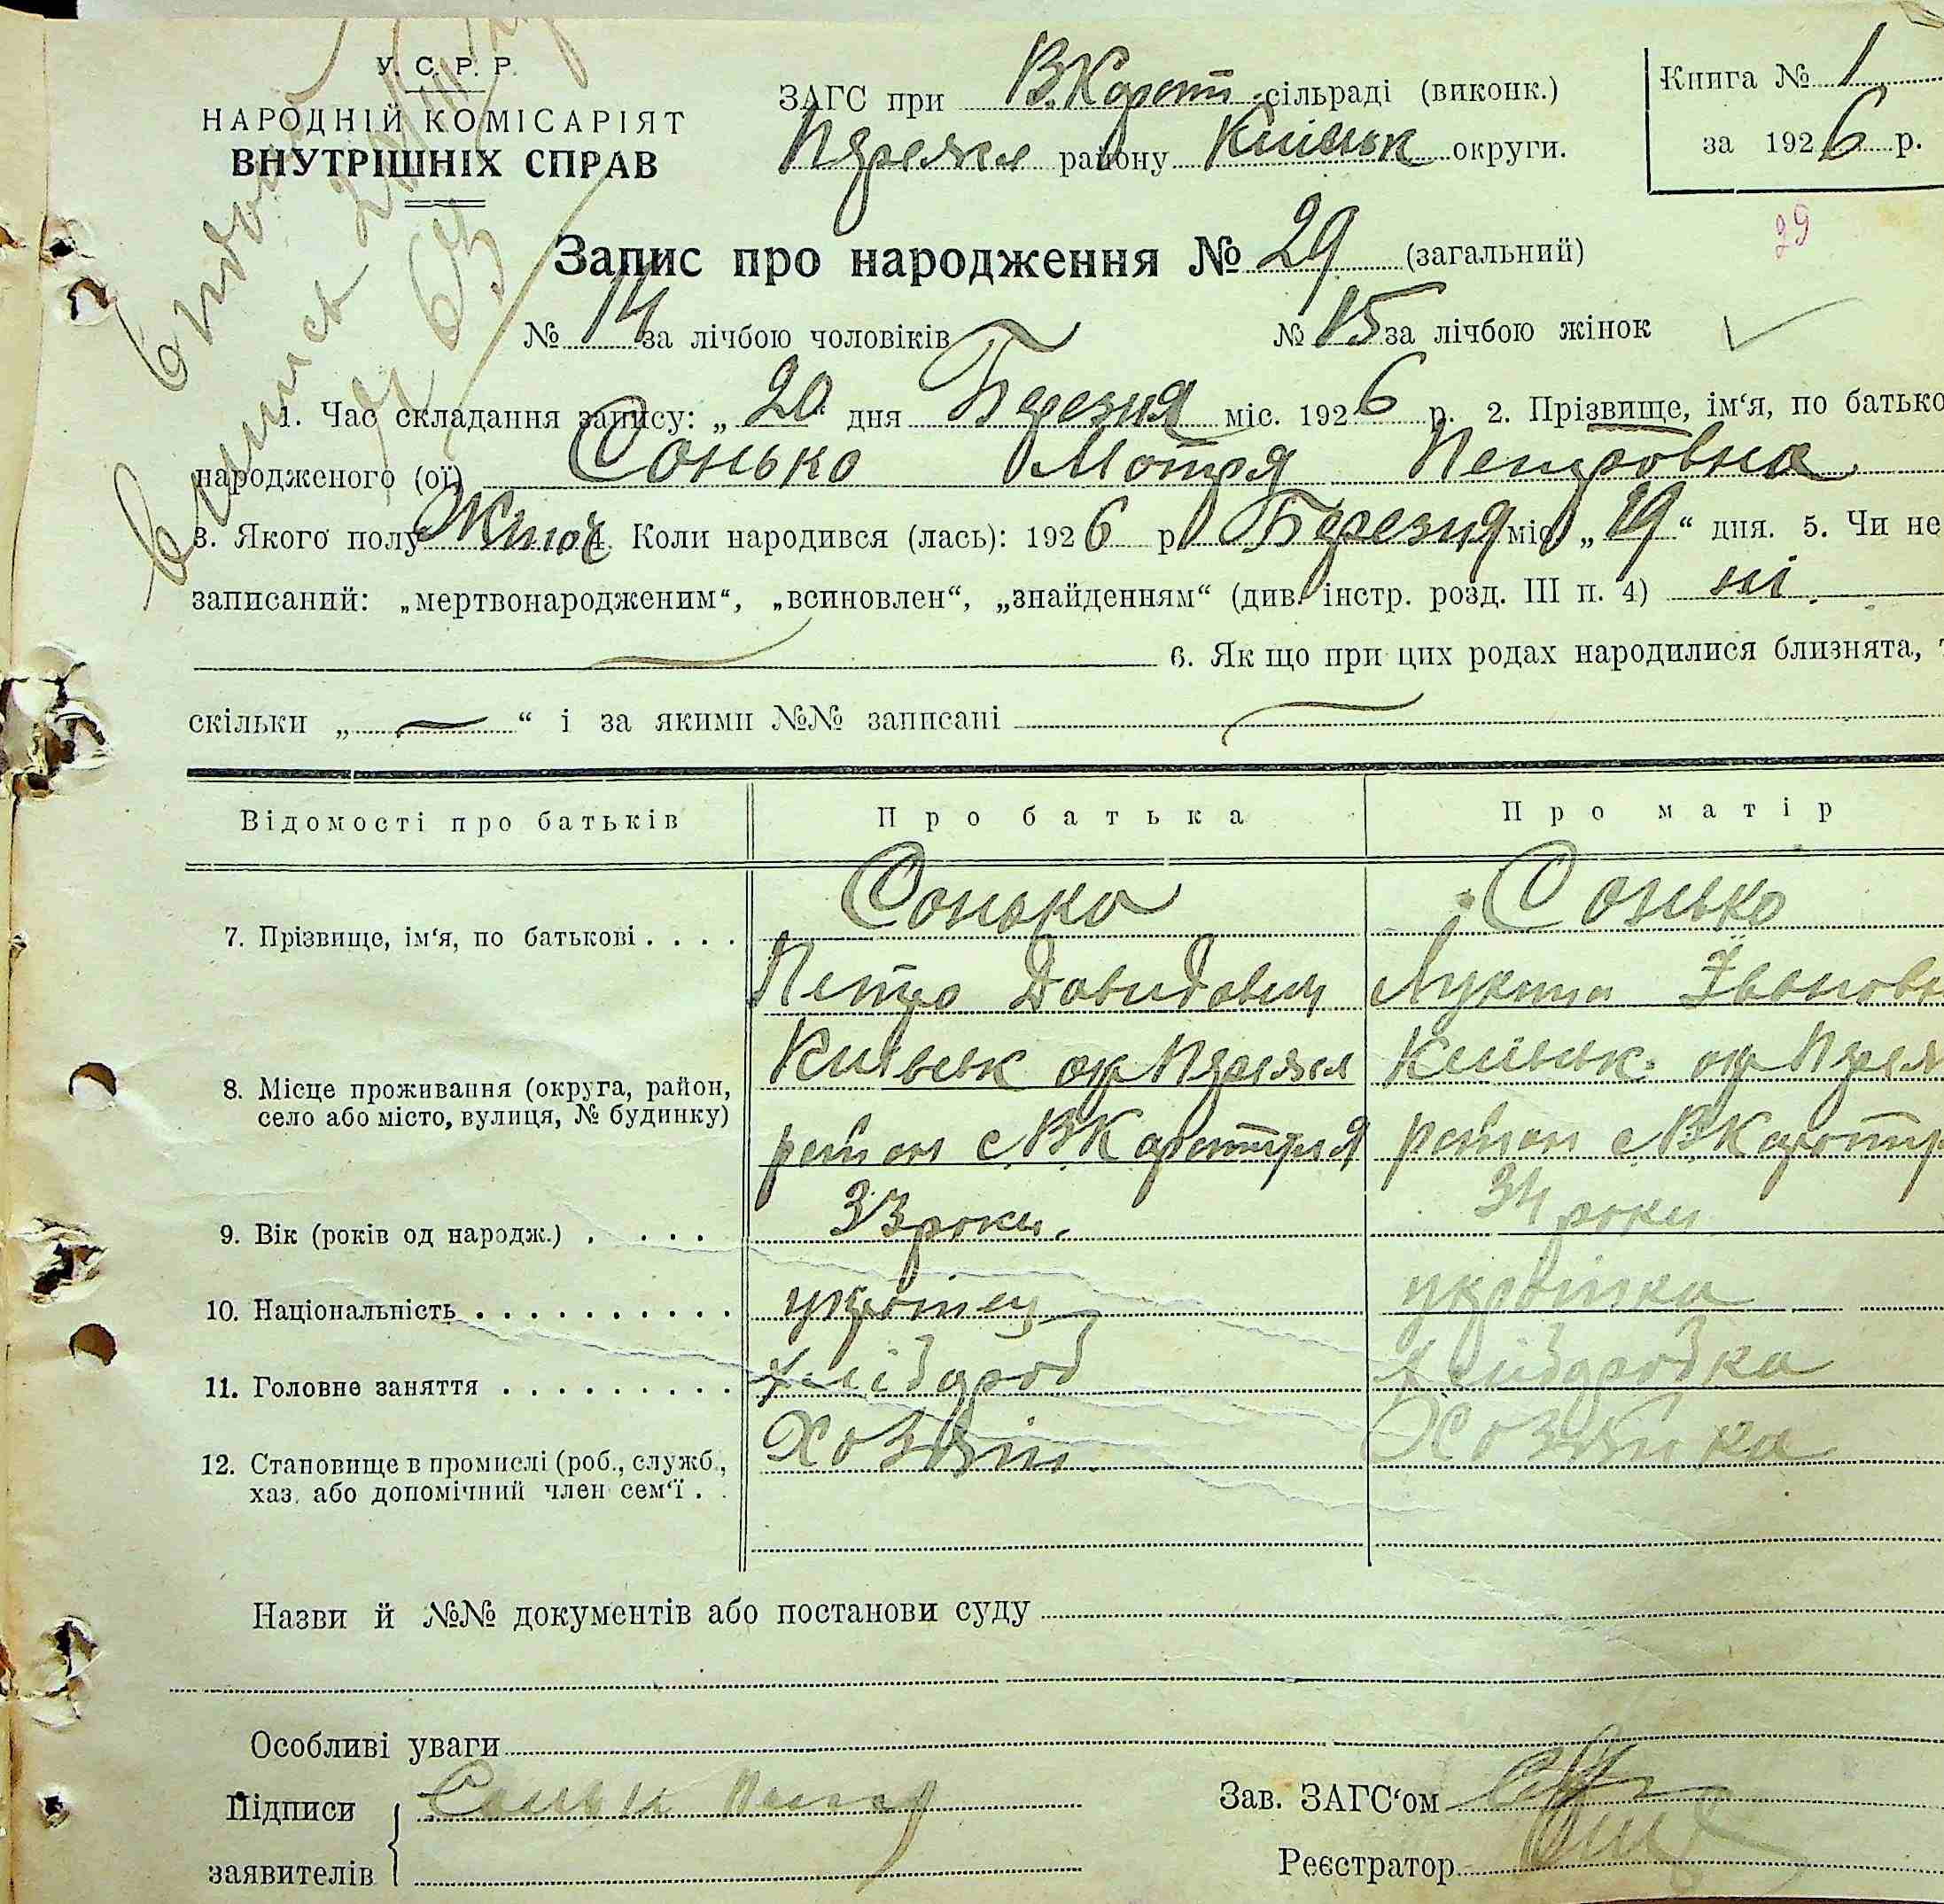 У. С. Р. Р.
НАРОДНІЙ КОМІСАРІЯТ
ВНУТРІШНІХ СПРАВ
ЗАГС при В.Карат. сільраді (виконк.)
Переясл району Київськ округи.
Книга № 1
за 1926 р.
29
Запис про народження № 29 (загальний)
№ 14 за лічбою чоловіків № 15 за лічбою жінок
1. Час складання запису: „20" дня Березня міс. 1926 р. 2. Прізвище, ім'я, по батько
народженого (ої) Сонько Мотря Петровна
3. Якого полу Жіноч 4. Коли народився (лась): 1926 р. Березня міс. „19" дня. 5. Чи не
записаний: „мертвонародженим", „всиновлен", „знайденням" (див. інстр. розд. III п. 4) ні.
6. Як що при цих родах народилися близнята, т
скільки „ — " і за якими №№ записані —
Відомості про батьків Про батька Про матір
7. Прізвище, ім'я, по батькові . . . . Сонько Сонько
Петро Давидович Лукина Івановн
8. Місце проживання (округа, район, Київськ окр Переясл Київськ. окр Переяс
село або місто, вулиця, № будинку) район с ВКаратуля район с ВКарату
9. Вік (років од народж.) . . . . . 33 роки. 34 роки
10. Національність . . . . . . . . . . українец українка
11. Головне заняття . . . . . . . . . хлібороб хліборобка
12. Становище в промислі (роб., служб., Хозяїн. Хозяйка
хаз. або допомічний член сем'ї . .
Назви й №№ документів або постанови суду
Особливі уваги
Підписи Сонько Петро
заявителів
Зав. ЗАГС'ом
Реєстратор